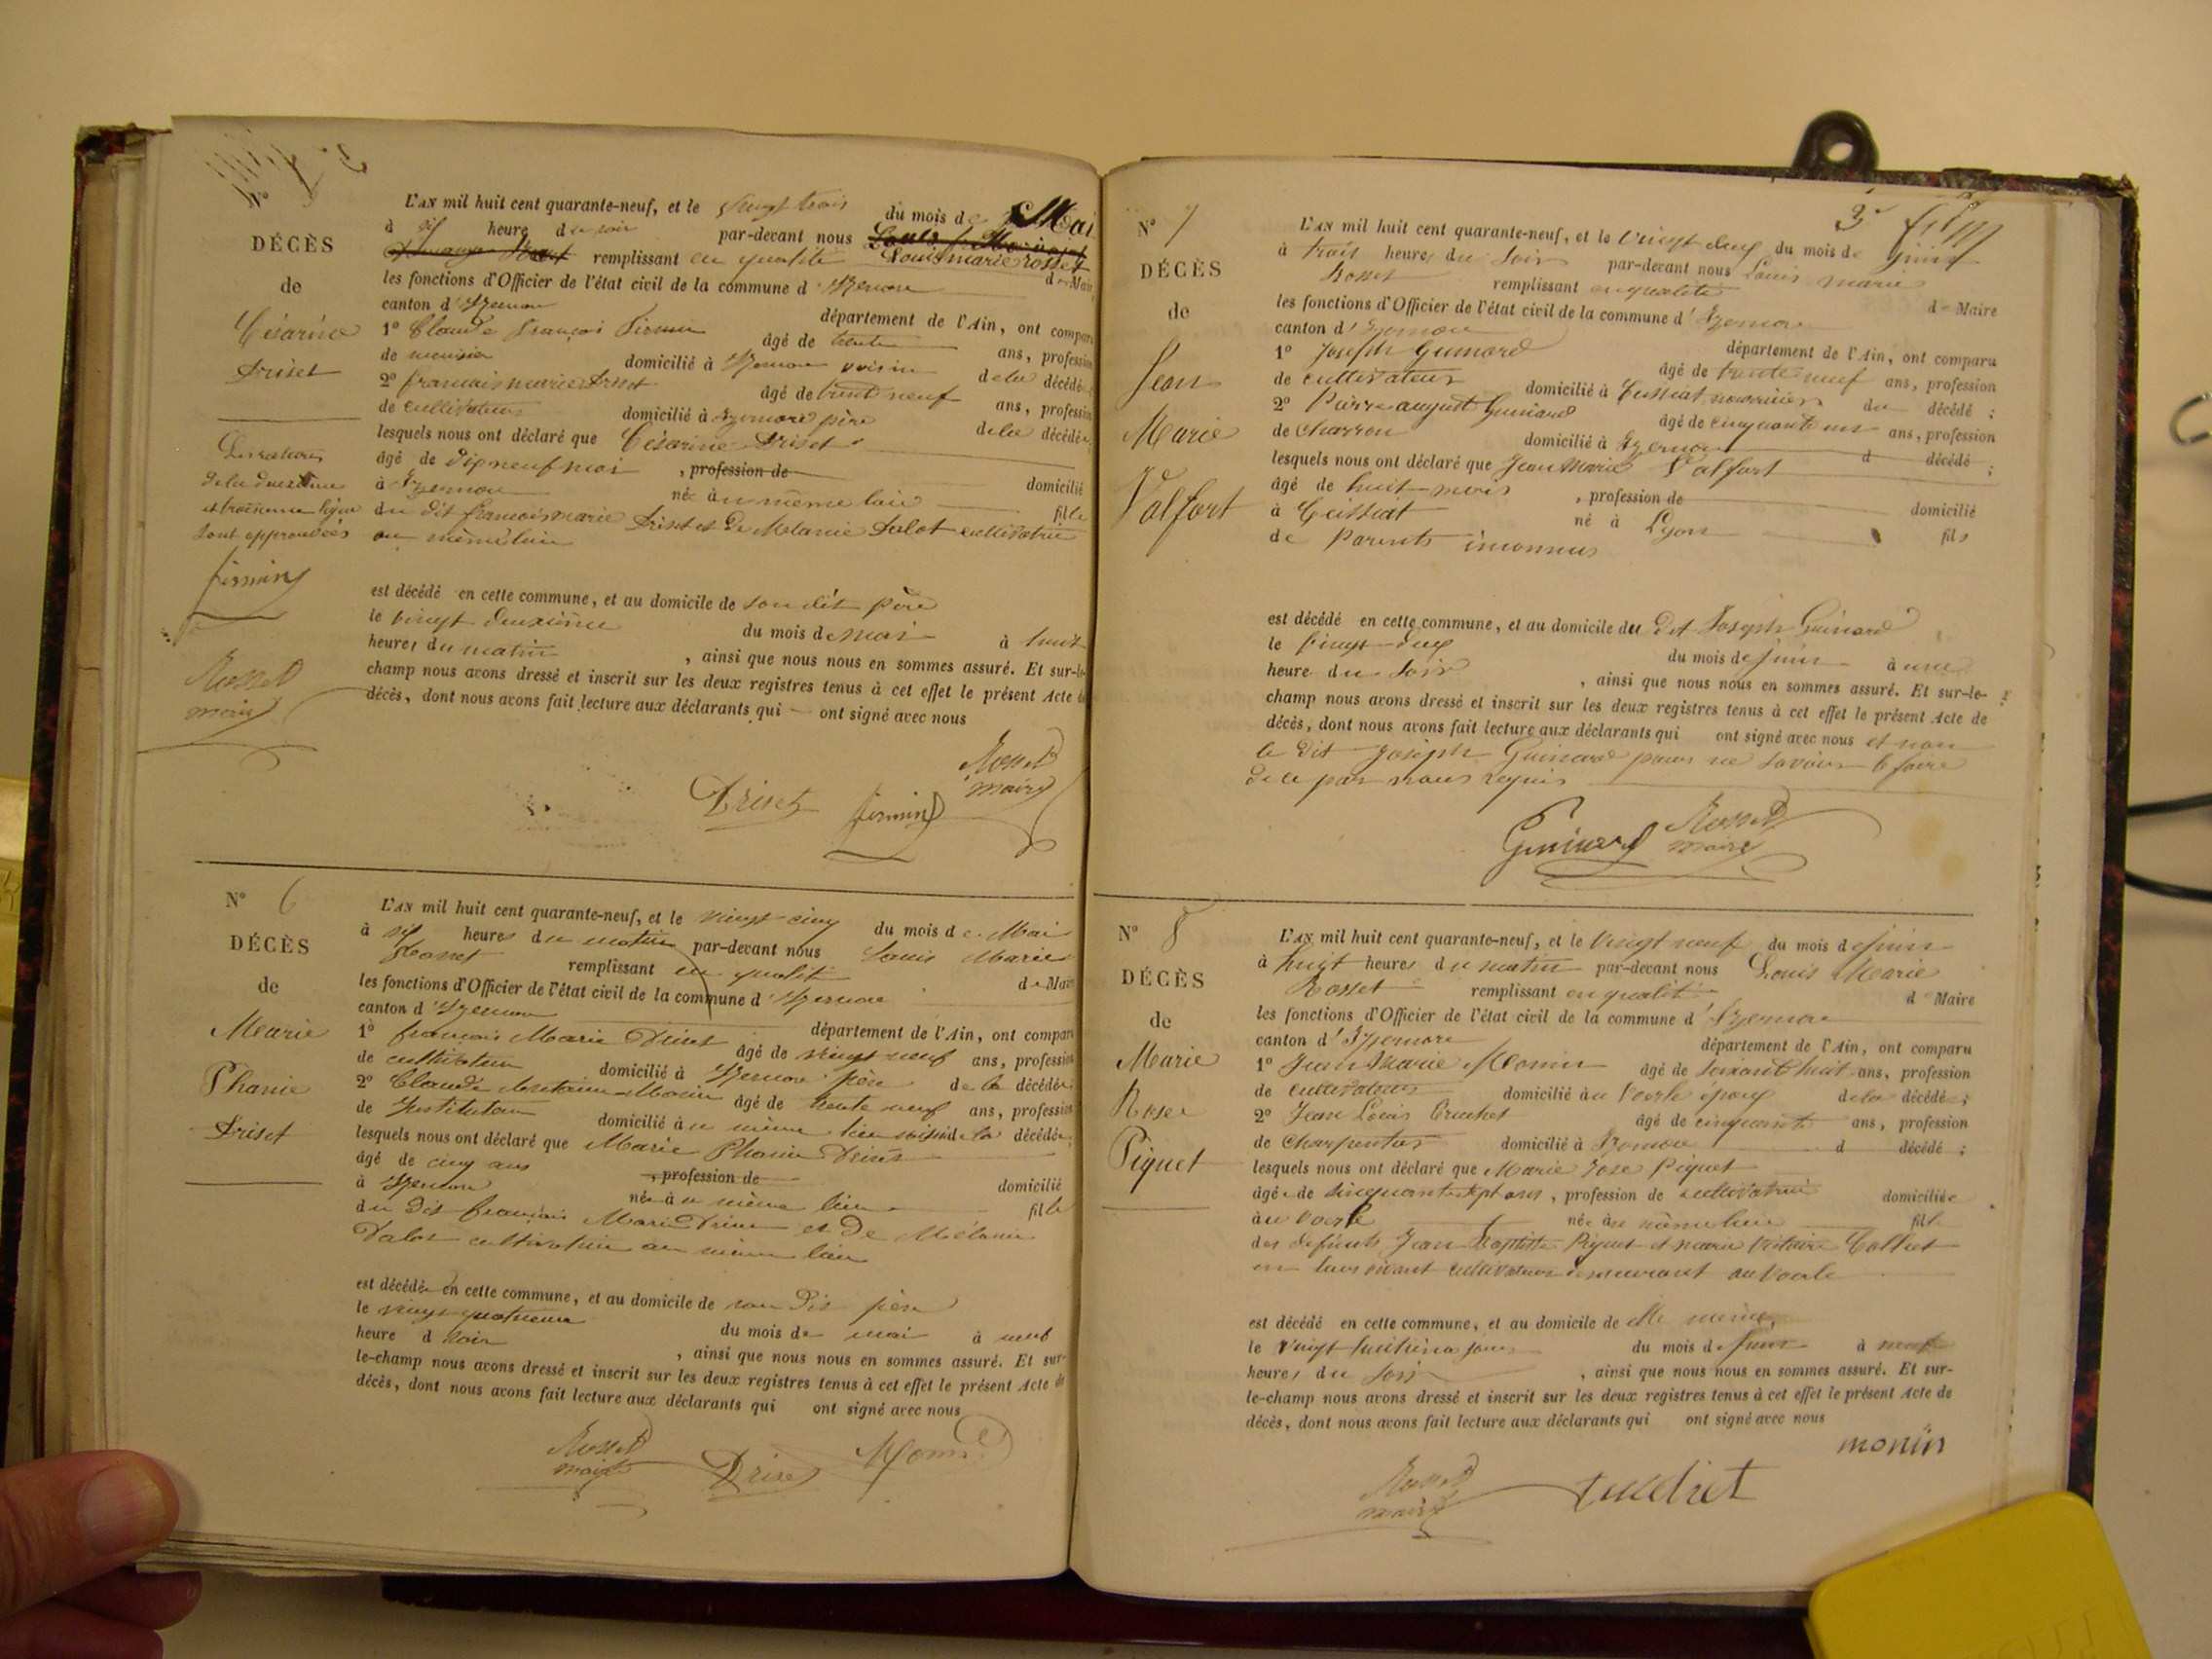 DÉCÈS
de
Césarine
Driset
L'AN mil huit cent quarante-neuf, et le vingt trois du mois de Mai
à six heure du soir par-devant nous
remplissant en qualité Louis marie rosset
les fonctions d'Officier de l'état civil de la commune d'Izernore de Maire
canton d'Izernore département de l'Ain, ont comparu
1° Claude françois Firmin âgé de trente ans, profession
de domicilié à Izernore voisin de la décédée
2° francois marie Driset âgé de trent neuf ans, profession
de cultivateur domicilié à Izernore père de la décédée
lesquels nous ont déclaré que Césarine Driset
âgé de dix neuf moi , profession de domicilié
à Izernore née à u même lieu fille
du dit francois marie Driset et De Melanie Dalot cultivatrice
au même lieu
de la deuxième
et troisieme ligne
sont approuvées
firmin
Rosset
maire
est décédé en cette commune, et au domicile de son dit père
le vingt deuxième du mois de mai à huit
heures du matin , ainsi que nous nous en sommes assuré. Et sur-le-
champ nous avons dressé et inscrit sur les deux registres tenus à cet effet le présent Acte de
décès, dont nous avons fait lecture aux déclarants qui ont signé avec nous
Rosset
maire
Driset firmin
N° 6
DÉCÈS
de
Marie
Phanie
Driset
L'AN mil huit cent quarante-neuf, et le vingt-cinq du mois de Mai
à six heures du matin par-devant nous Louis Marie
Rosset remplissant en qualité de Maire
les fonctions d'Officier de l'état civil de la commune d'Izernore
canton d'Izernore département de l'Ain, ont comparu
1° français Marie Driset âgé de vingt neuf ans, profession
de cultivateur domicilié à Izernore père de la décédée
2° Claude Monin âgé de trente neuf ans, profession
de Instituteur domicilié à u même lieu voisin de la décédée
lesquels nous ont déclaré que Marie Phanie Driset
âgé de cinq ans , profession de domicilié
à Izernore née à u même lieu fille
du dit français Marie Driset et De Mélanie
Dalot cultivatrice au même lieu
est décédée en cette commune, et au domicile de son Dit père
le vingt quatrieme du mois de mai à neuf
heure d soir , ainsi que nous nous en sommes assuré. Et sur-
le-champ nous avons dressé et inscrit sur les deux registres tenus à cet effet le présent Acte de
décès, dont nous avons fait lecture aux déclarants qui ont signé avec nous
Rosset
maire Driset Monin
3e film
N° 7
DÉCÈS
de
Jean
Marie
Valfort
L'AN mil huit cent quarante-neuf, et le vingt deux du mois de juin
à trois heures du soir par-devant nous Louis marie
Rosset remplissant en qualité de Maire
les fonctions d'Officier de l'état civil de la commune d'Izernore
canton d'Izernore département de l'Ain, ont comparu
1° Joseph Guinard âgé de trente neuf ans, profession
de cultivateur domicilié à Ceissiat nourricier du décédé ;
2° Pierre august Guinard âgé de cinquante un ans, profession
de charron domicilié à Izernore d décédé ;
lesquels nous ont déclaré que Jean Marie Valfort
âgé de huit mois , profession de domicilié
à Ceissiat né à Lyon fils
de Parents inconnus
est décédé en cette commune, et au domicile du dit Joseph Guinard
le vingt-deux du mois de juin à une
heure du soir , ainsi que nous nous en sommes assuré. Et sur-le-
champ nous avons dressé et inscrit sur les deux registres tenus à cet effet le présent Acte de
décès, dont nous avons fait lecture aux déclarants qui ont signé avec nous et non
le dit Joseph Guinard pour ne savoir le faire
de ce par nous requis
Guinard Rosset
maire
N° 8
DÉCÈS
de
Marie
Rose
Piquet
L'AN mil huit cent quarante-neuf, et le vingt neuf du mois de juin
à huit heures du matin par-devant nous Louis Marie
Rosset remplissant en qualité d Maire
les fonctions d'Officier de l'état civil de la commune d'Izernore
canton d'Izernore département de l'Ain, ont comparu
1° Jean Marie Monin âgé de soixante huit ans, profession
de cultivateur domicilié au Voerle époux de la décédée ;
2° Jean Louis âgé de cinquante ans, profession
de Charpentier domicilié à Izernore d décédé ;
lesquels nous ont déclaré que Marie Rose Piquet
âgée de cinquante sept ans , profession de cultivatrice domiciliée
à u Voerle née à u même lieu fille
des défunts Jean Baptiste Piquet et marie Collet
en leur vivant cultivateurs demeurant au Voerle
est décédé en cette commune, et au domicile de elle même,
le vingt huitième jour du mois de juin à neuf
heures du soir , ainsi que nous nous en sommes assuré. Et sur-
le-champ nous avons dressé et inscrit sur les deux registres tenus à cet effet le présent Acte de
décès, dont nous avons fait lecture aux déclarants qui ont signé avec nous
monin
Rosset
maire